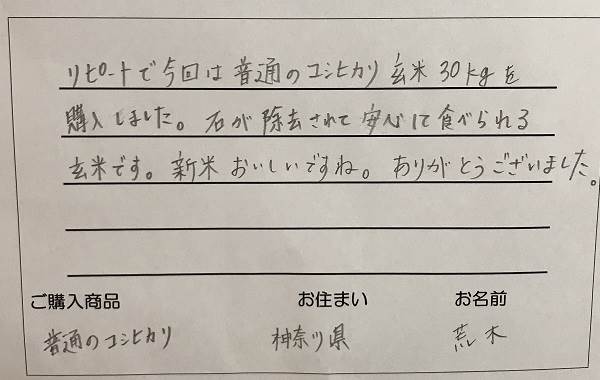 リピートで今回は普通のコシヒカリ玄米30kgを
購入しました。石が除去されて安心して食べられる
玄米です。新米おいしいですね。ありがとうございました。
ご購入商品 お住まい お名前
普通のコシヒカリ 神奈川県 荒木